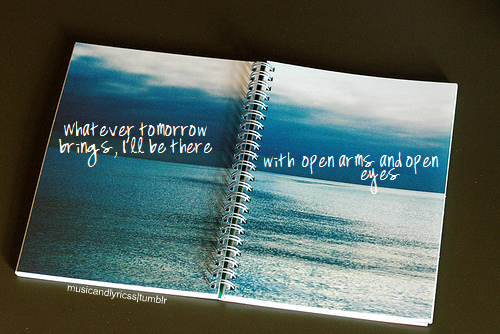 whatever tomorrow
brings, I'll be there
with open arms and open
eyes
musicandlyricss|tumblr